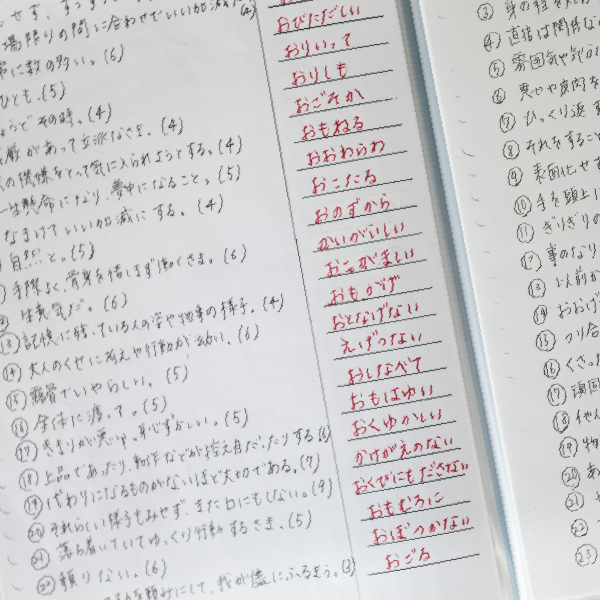 場限りの間に合わせでいい加減
おびただしい
常に数の多い。(6)
おりいって
ひとも。(5)
おりしも
ょうどその時。(4)
おごそか
厳があって立派なさま。(4)
おもねる
の機嫌をとって気に入られようとする。(4)
おおわらわ
一生懸命になり、夢中になること。(5)
おこたる
なまけていい加減にする。(4)
おのずから
自然と。(5)
かいがいしい
手際よく、骨身を惜しまず働くさま。(6)
おこがましい
生意気だ。(6)
おもかげ
⑬ 記憶に残っている人の姿や物事の様子。(4)
おとなげない
⑭ 大人のくせに考えや行動が幼い。(6)
えげつない
⑮ 露骨でいやらしい。(5)
おしなべて
⑯ 全体に渡って。(5)
おもはゆい
⑰ きまりが悪い。恥ずかしい。(5)
おくゆかしい
⑱ 上品であったり、動作などが控え目だったりする(6)
かけがえのない
⑲ 代わりになるものがないほど大切である。(7)
おくびにもださない
⑳ それらしい様子もみせず、また口にもしない。(9)
おもむろに
㉑ 落ち着いていてゆっくり行動するさま。(5)
おぼつかない
㉒ 頼りない。(6)
おごる
を頼みにして、我が儘にふるまう。(3)
③ 身の程を
④ 直接は関係な
⑤ 雰囲気や気
⑥ 悪心や
⑦ ひっくり返す
⑧ それをすること
⑨ 表面化せず
⑩ 手を頭上に
⑪ ぎりぎりの
⑫ 事のなり
⑬ 以前か
⑭ おおげ
⑮ つり合
⑯ くさっ
⑰ 頑固
⑱ 他人
⑲ 物
⑳
㉑
㉒
㉓